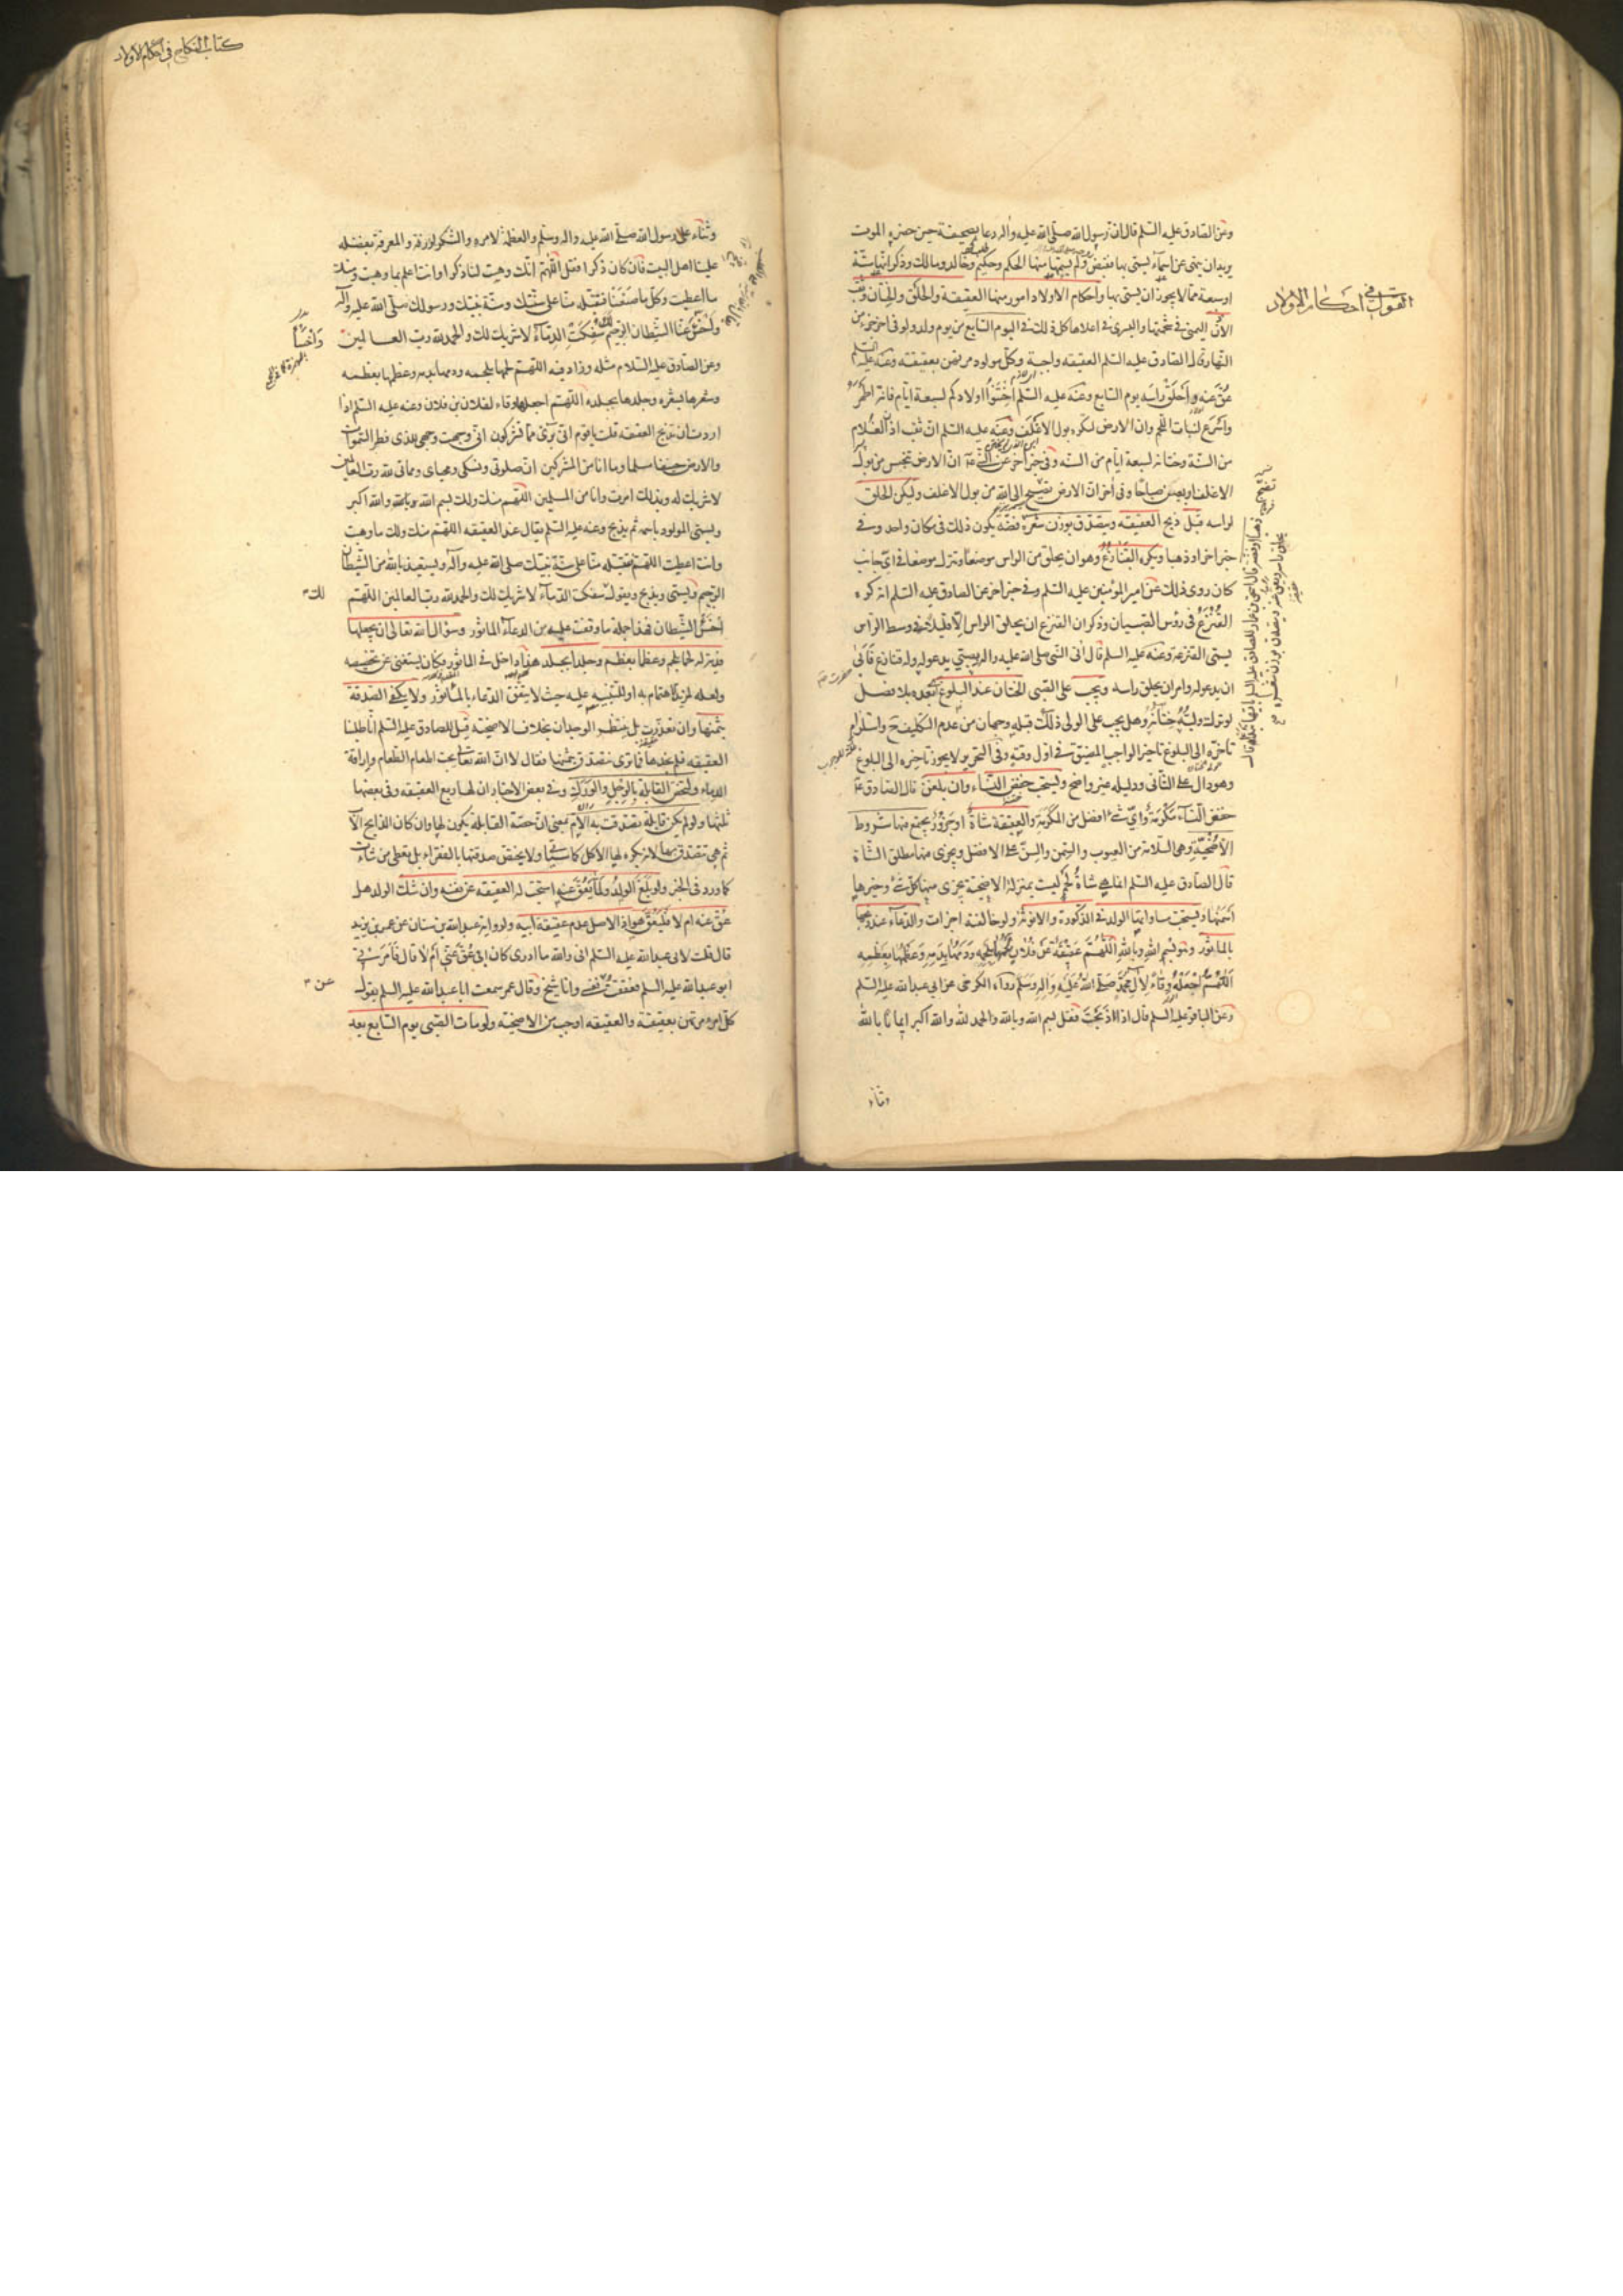 وعن الصادق عليه السلم قال ان رسول الله صلى الله عليه واله دعا بصحيفة حين حضره الموت
يريد ان ينهى عن اسماء يتسمى بها فقبض ولم يسمها منها الحكم وحكيم وخالد ومالك وذكر انها ستة
او سبعة مما لا يجوز ان يتسمى بها واحكام الاولاد امور منها العقيقة والحلق والختان وثقب
القول في احكام الاولاد
الاذن اليمنى في شحمتها واليسرى في اعلاها كل ذلك في اليوم السابع من يوم ولد ولو في اخر جزء من
النهار قال الصادق عليه السلم العقيقه واجبة وكل مولود مرتهن بعقيقته وعنه عليه السلم
عق عنه واحلق راسه يوم السابع وعنه عليه السلم اختنوا اولادكم لسبعة ايام فانه اطهر
واسرع لنبات اللحم وان الارض لتكره بول الاغلف وعنه عليه السلم ان ثقب اذن الغلام
من السنة وختانه لسبعة ايام من السنه وفي خبر اخر عن النبي ص ان الارض تنجس من بول
الاغلف اربعين صباحا وفي اخر ان الارض تضج الى الله من بول الاغلف وليكن الحلق
لراسه قبل ذبح العقيقه ويتصدق بوزن شعره فضة يكون ذلك في مكان واحد وفي
خبر اخر او ذهبا ويكره القنازع وهو ان يحلق من الراس موضعا ويترك موضعا في اي جانب
كان روى ذلك عن امير المؤمنين عليه السلم وفي خبر اخر عن الصادق عليه السلم انه كره
القزع في رؤس الصبيان وذكر ان القزع ان يحلق الراس الا قليلا في وسط الراس
يسمى القزعة وعنه عليه السلم قال اتى النبي صلى الله عليه واله بصبي يدعو له وله قنازع فابى
ان يدعو له وامر ان يحلق راسه ويجب على الصبي الختان عند البلوغ اي بعده بلا فصل
لو ترك وليه ختانه وهل يجب على الولي ذلك قبله وجهان من عدم التكليف ح واستلزام
تاخره الى البلوغ تاخير الواجب المضيق في اول وقته وفي التحرير لا يجوز تاخيره الى البلوغ
وهو دال على الثاني ودليله غير واضح ويستحب خفض النساء وان بلغن قال الصادق ع
خفض النساء مكرمة واي شيء افضل من المكرمة والعقيقة شاة او جزور يجتمع فيها شروط
الاضحية وهي السلامة من العيوب والسمن والسن على الافضل ويجزى فيها مطلق الشاة
قال الصادق عليه السلم انما هي شاة لحم ليست بمنزلة الاضحية يجزى منها كل شيء وخيرها
اسمنها ويستحب مساواتها الولد في الذكورة والانوثة ولو خالفته اجزات والدعاء عند ذبحها
بالماثور وهو بسم الله وبالله اللهم عقيقة عن فلان لحمها بلحمه ودمها بدمه وعظمها بعظمه
اللهم اجعله وقاء لال محمد صلى الله عليه واله وسلم رواه الكرخي عن ابي عبد الله عليه السلم
وعن الباقر عليه السلم قال اذا ذبحت فقل بسم الله وبالله والحمد لله والله اكبر ايمانا بالله
وثناء
كتاب النكاح في احكام الاولاد
وثناء على رسول الله صلى الله عليه واله وسلم والعظمة لامره والشكر لرزقه والمعرفة بفضله
علينا اهل البيت فان كان ذكرا فقل اللهم انك وهبت لنا ذكرا وانت اعلم بما وهبت ومنك
ما اعطيت وكل ما صنعنا فتقبله منا على سنتك وسنة نبيك ورسولك صلى الله عليه واله
واخس عنا الشيطان الرجيم لك سفكت الدماء لا شريك لك والحمد لله رب العالمين
وعن الصادق عليه السلام مثله وزاد فيه اللهم لحمها بلحمه ودمها بدمه وعظمها بعظمه
وشعرها بشعره وجلدها بجلده اللهم اجعلها وقاء لفلان بن فلان وعنه عليه السلم اذا
اردت ان تذبح العقيقه قلت يا قوم اني برىء مما تشركون اني وجهت وجهي للذي فطر السموات
والارض حنيفا مسلما وما انا من المشركين ان صلوتي ونسكي ومحياي ومماتي لله رب العالمين
لا شريك له وبذلك امرت وانا من المسلمين اللهم منك ولك بسم الله وبالله والله اكبر
ويسمي المولود باسمه ثم يذبح وعنه عليه السلم يقال عند العقيقه اللهم منك ولك ما وهبت
وانت اعطيت اللهم فتقبله منا على سنة نبيك صلى الله عليه وآله ويستعيذ بالله من الشيطان
الرجيم ويسمي ويذبح ويقول لك سفكت الدماء لا شريك لك والحمد لله رب العالمين اللهم
اخس الشيطان فهذا جملة ما وقفت عليه من الدعاء الماثور وسؤال الله تعالى ان يجعلها
فدية له لحما بلحم وعظما بعظم وجلدا بجلد هذا داخل في الماثور فكان يستغنى عن تخصيصه
ولعله لمزيد الاهتمام به او للتنبيه عليه حيث لا يتفق الدعاء بالماثور ولا يكفي الصدقة
بثمنها وان تعذرت بل ينتظر الوجدان بخلاف الاضحية قيل للصادق عليه السلم انا طلبنا
العقيقه فلم نجدها فما ترى نتصدق بثمنها فقال لا ان الله تعالى يحب اطعام الطعام واراقة
الدماء ولتخص القابلة بالرجل والورك وفي بعض الاخبار ان لها ربع العقيقه وفي بعضها
ثلثها ولو لم يكن قابلة تصدقت به الام بمعنى ان حصة القابلة يكون لها وان كان الذابح الاب
ثم هي تتصدق بها لانه يكره لها الاكل كما سياتي ولا يختص صدقتها بالفقراء بل يعطي من شاءت
كما ورد في الخبر ولو بلغ الولد ولما يعق عنه استحب له العقيقه عن نفسه وان شك الولد هل
عق عنه ام لا فليعق هو اذ الاصل عدم عقيقة ابيه ولرواية عبد الله بن سنان عن عمر بن يزيد
قال قلت لابي عبد الله عليه السلم اني والله ما ادري كان ابي عق عني ام لا قال فامرني
ابو عبد الله عليه السلم فعققت عن نفسي وانا شيخ وقال عمر سمعت ابا عبد الله عليه السلم يقول
كل امرء مرتهن بعقيقة والعقيقه اوجب من الاضحية ولو مات الصبي يوم السابع بعد